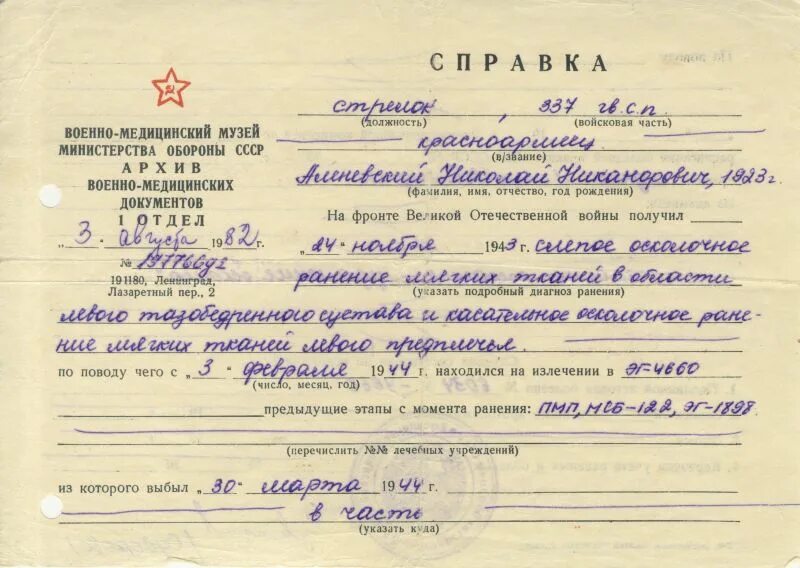 СПРАВКА
стрелок, 337 гв.с.п.
(должность) (войсковая часть)
красноармеец
(в/звание)
Аленевский Николай Никанорович, 1923 г.
(фамилия, имя, отчество, год рождения)
ВОЕННО-МЕДИЦИНСКИЙ МУЗЕЙ
МИНИСТЕРСТВА ОБОРОНЫ СССР
АРХИВ
ВОЕННО-МЕДИЦИНСКИХ
ДОКУМЕНТОВ
1 ОТДЕЛ
„3" Августа 1982 г.
№
191180, Ленинград,
Лазаретный пер., 2
На фронте Великой Отечественной войны получил
„24" ноября 1943 г. слепое осколочное
ранение мягких тканей в области
(указать подробный диагноз ранения)
левого тазобедренного сустава и касательное осколочное ране-
ние мягких тканей левого предплечья.
по поводу чего с „3" февраля 1944 г. находился на излечении в ЭГ-4660
(число, месяц, год)
предыдущие этапы с момента ранения: ПМП, МСБ-122, ЭГ-1898.
(перечислить №№ лечебных учреждений)
из которого выбыл „30" марта 1944 г.
в часть
(указать куда)